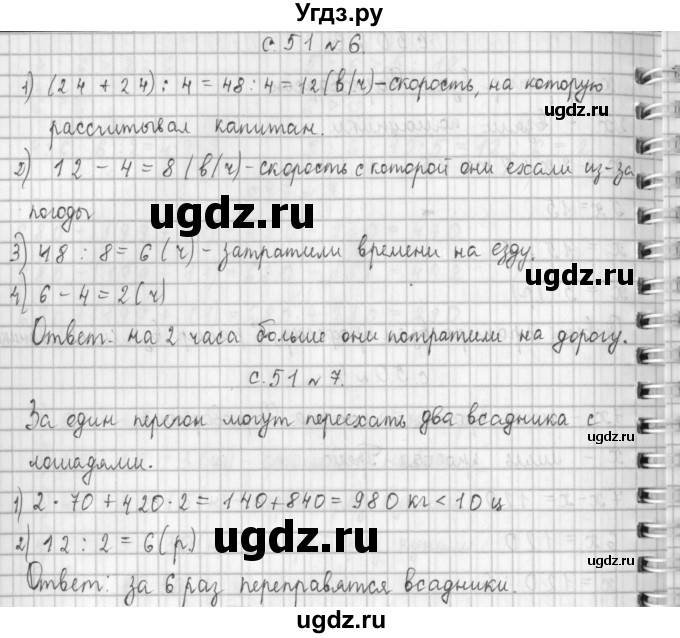 Угдз.ру
с. 51 № 6.
1) (24 + 24) : 4 = 48 : 4 = 12 (в/ч) - скорость, на которую
рассчитывал капитан.
2) 12 - 4 = 8 (в/ч) - скорость с которой они ехали из-за
погоды
ugdz.ru
ugdz.ru
3) 48 : 8 = 6 (ч) - затратили времени на езду.
ugdz.ru
4) 6 - 4 = 2 (ч)
Ответ: на 2 часа больше они потратили на дорогу.
с. 51 № 7.
За один перегон могут переехать два всадника с
ugdz.ru
лошадями.
1) 2 · 70 + 420 · 2 = 140 + 840 = 980 кг < 10 ц
2) 12 : 2 = 6 (р)
ugdz.ru
ugdz.ru
Ответ: за 6 раз переправятся всадники.
ugdz.ru